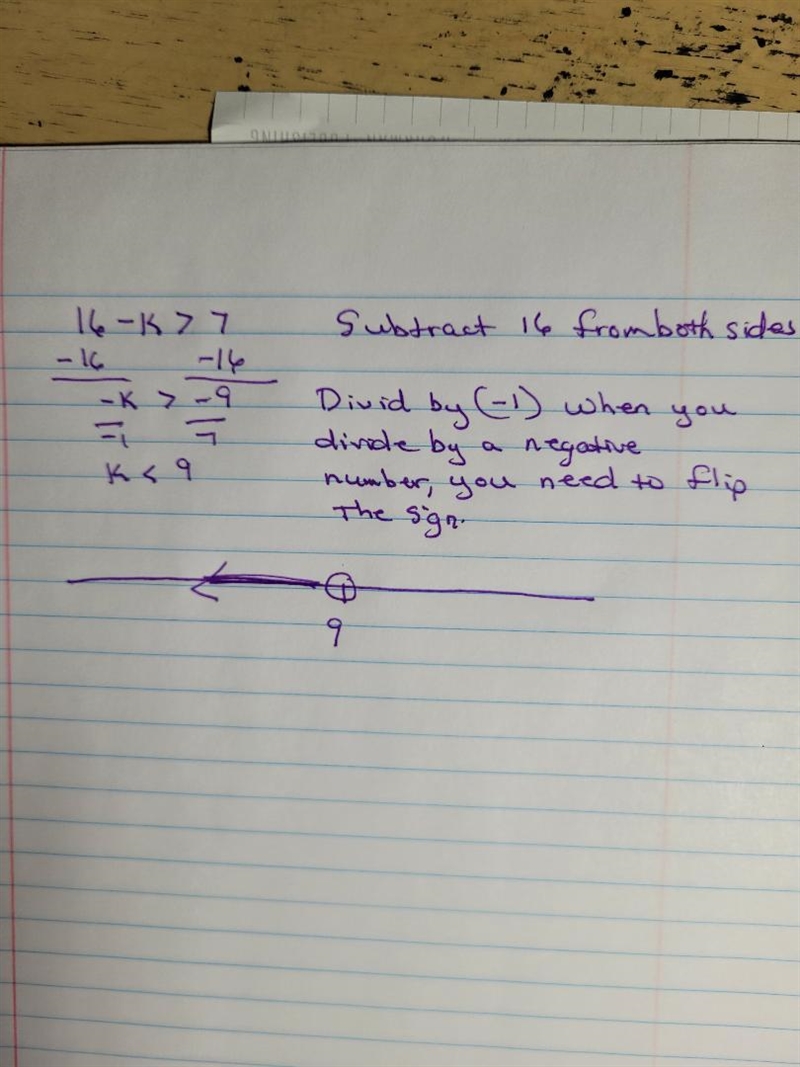 16 - K > 7 Subtract 16 from both sides
-16 -16
-K > -9 Divid by (-1) when you
-1 -1 divide by a negative
K < 9 number, you need to flip
the sign.
9